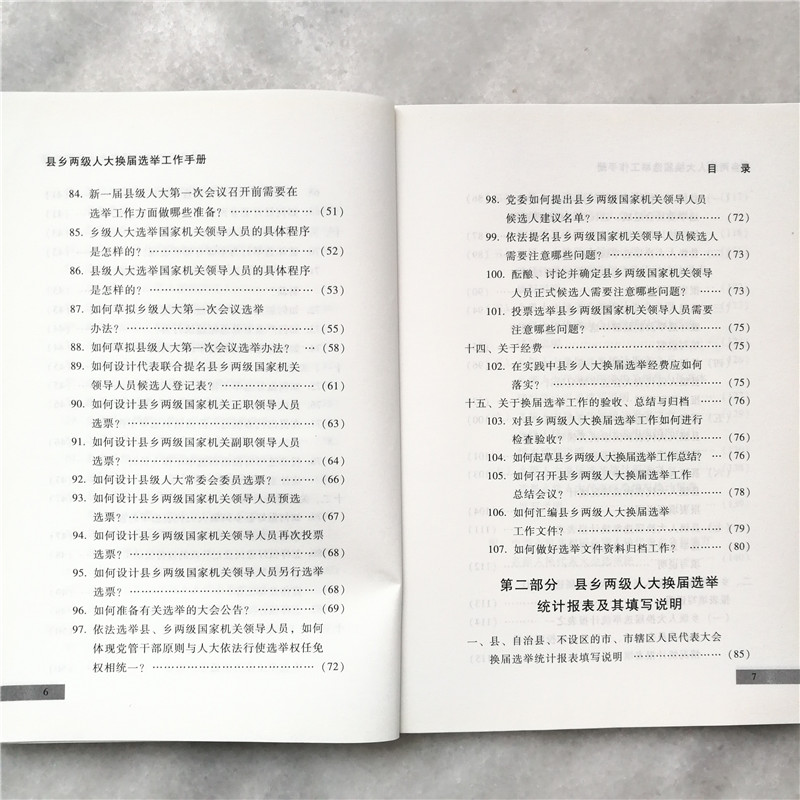 县乡两级人大换届选举工作手册
84. 新一届县级人大第一次会议召开前需要在
选举工作方面做哪些准备? ……………… (51)
85. 乡级人大选举国家机关领导人员的具体程序
是怎样的? ………………………………… (52)
86. 县级人大选举国家机关领导人员的具体程序
是怎样的? ………………………………… (53)
87. 如何草拟乡级人大第一次会议选举
办法? ……………………………………… (55)
88. 如何草拟县级人大第一次会议选举办法? … (58)
89. 如何设计代表联合提名县乡两级国家机关
领导人员候选人登记表? ………………… (61)
90. 如何设计县乡两级国家机关正职领导人员
选票? ……………………………………… (63)
91. 如何设计县乡两级国家机关副职领导人员
选票? ……………………………………… (64)
92. 如何设计县级人大常委会委员选票? ……… (66)
93. 如何设计县乡两级国家机关领导人员预选
选票? ……………………………………… (67)
94. 如何设计县乡两级国家机关领导人员再次投票
选票? ……………………………………… (68)
95. 如何设计县乡两级国家机关领导人员另行选举
选票? ……………………………………… (68)
96. 如何准备有关选举的大会公告? …………… (69)
97. 依法选举县、乡两级国家机关领导人员，如何
体现党管干部原则与人大依法行使选举权任免
权相统一? ………………………………… (72)
6
目 录
98. 党委如何提出县乡两级国家机关领导人员
候选人建议名单? ………………………… (72)
99. 依法提名县乡两级国家机关领导人员候选人
需要注意哪些问题? ……………………… (73)
100. 酝酿、讨论并确定县乡两级国家机关领导
人员正式候选人需要注意哪些问题? …… (73)
101. 投票选举县乡两级国家机关领导人员需要
注意哪些问题? …………………………… (75)
十四、关于经费 ………………………………… (75)
102. 在实践中县乡人大换届选举经费应如何
落实? ……………………………………… (75)
十五、关于换届选举工作的验收、总结与归档 …… (76)
103. 对县乡两级人大换届选举工作如何进行
检查验收? ………………………………… (76)
104. 如何起草县乡两级人大换届选举工作总结? … (76)
105. 如何召开县乡两级人大换届选举工作
总结会议? ………………………………… (78)
106. 如何汇编县乡两级人大换届选举
工作文件? ………………………………… (79)
107. 如何做好选举文件资料归档工作? ……… (80)
第二部分 县乡两级人大换届选举
统计报表及其填写说明
一、县、自治县、不设区的市、市辖区人民代表大会
换届选举统计报表填写说明 ……………… (85)
7